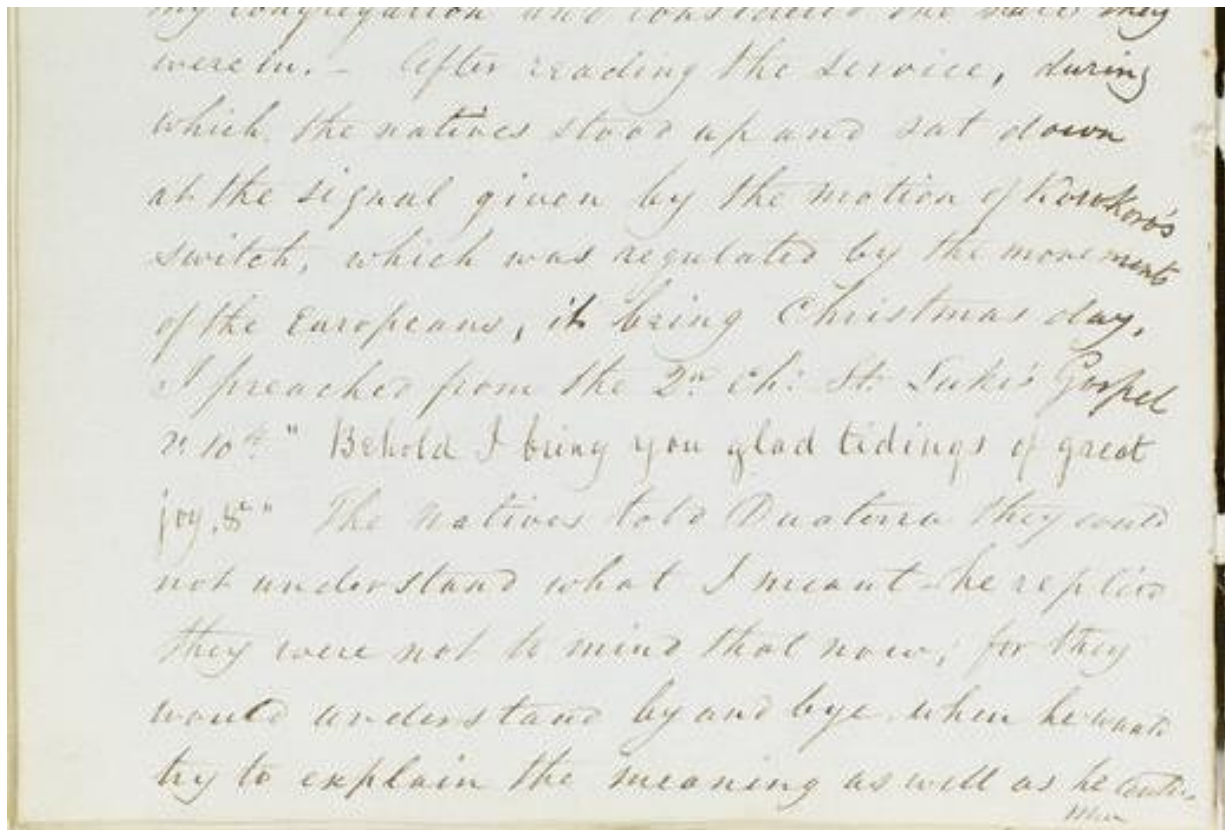 my congregation and considered the state they
were in. - After reading the service, during
which the natives stood up and sat down
at the signal given by the motion of Korokoro's
switch, which was regulated by the movements
of the Europeans, it being Christmas day,
I preached from the 2n Ch: St. Luke's Gospel
v: 10th " Behold I bring you glad tidings of great
joy, &c" The natives told Duaterra they could
not understand what I meant - he replied
they were not to mind that now, for they
would understand by and bye when he would
try to explain the meaning as well as he could.
When